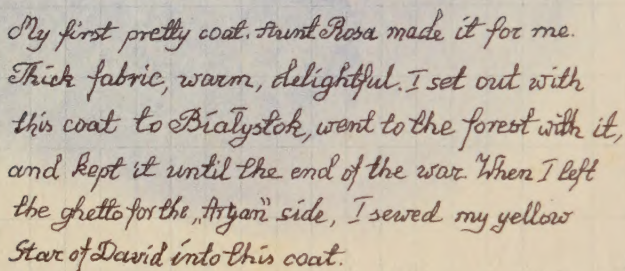 My first pretty coat. Aunt Rosa made it for me.
Thick fabric, warm, delightful. I set out with
this coat to Białystok, went to the forest with it,
and kept it until the end of the war. When I left
the ghetto for the „Aryan” side, I sewed my yellow
Star of David into this coat.